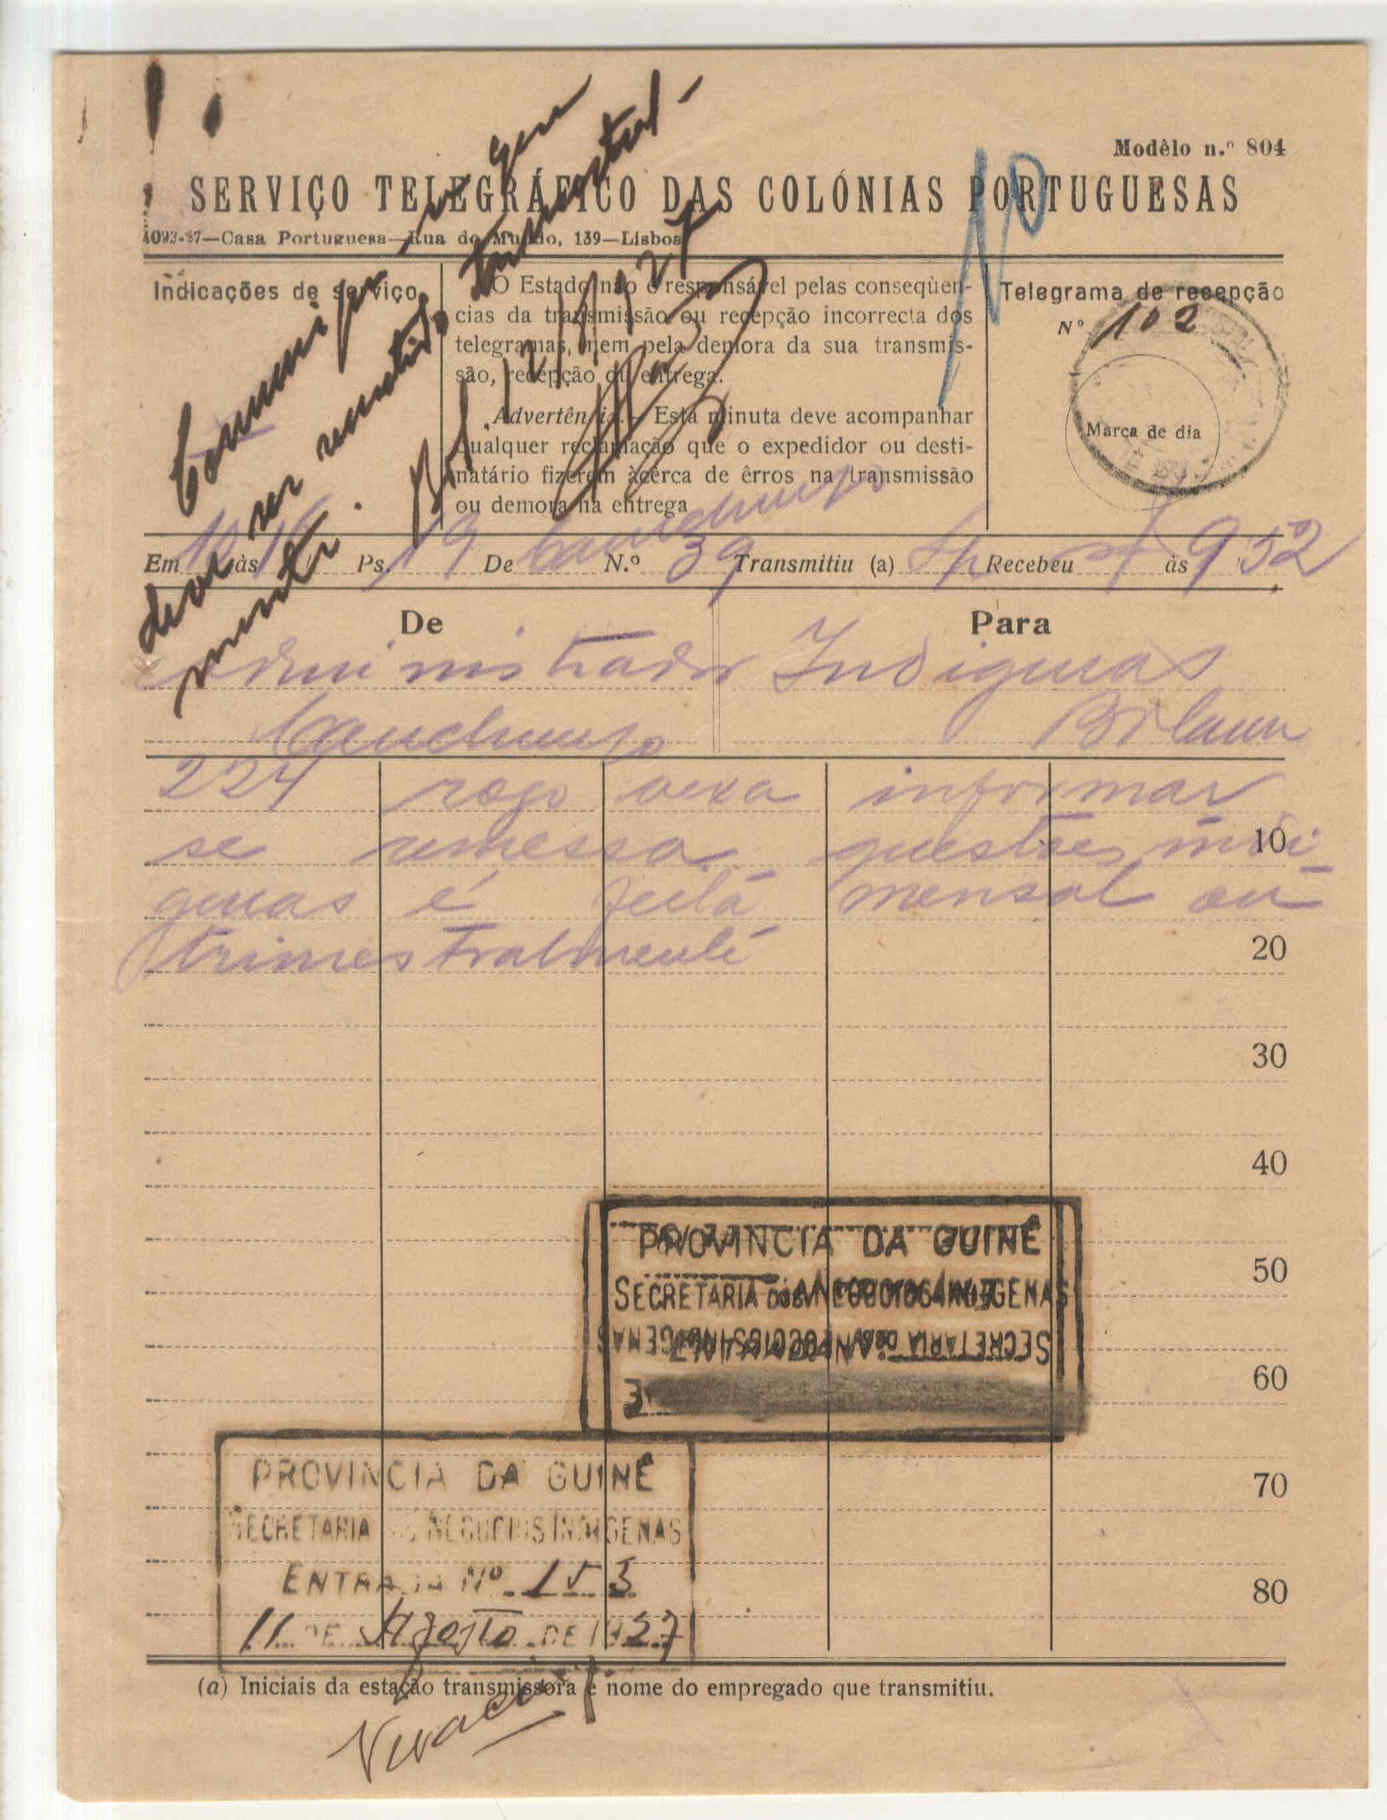 Modêlo n.º 804
SERVIÇO TELEGRÁFICO DAS COLÓNIAS PORTUGUESAS
4093-27—Casa Portuguesa—Rua do Mundo, 139—Lisboa
Nº
Indicações de serviço
O Estado não é responsável pelas conseqüên-
cias da transmissão ou recepção incorrecta dos
telegramas, nem pela demora da sua transmis-
são, recepção ou entrega.
Advertência.—Esta minuta deve acompanhar
qualquer reclamação que o expedidor ou desti-
natário fizerem àcêrca de êrros na transmissão
ou demora na entrega
Telegrama de recepção
Nº 102
Marca de dia
Communique-se que
deve ser remetido trimestral-
mente.
12/8/27
Em às 16 Ps. 19 De Canchungo N.º 39 Transmitiu (a) Recebeu às 9 52
De
Para
Administrador
Canchungo
Indigenas
Bolama
224 rogo vexa informar
se remessa questões indi-
genas é feita mensal ou
trimestralmente
10
20
30
40
50
60
70
80
PROVINCIA DA GUINÉ
SECRETARIA DOS NEGOCIOS INDIGENAS
SECRETARIA DOS NEGOCIOS INDIGENAS
PROVINCIA DA GUINÉ
SECRETARIA DOS NEGOCIOS INDIGENAS
ENTRADA Nº 153
11 DE Agosto DE 1927
(a) Iniciais da estação transmissora e nome do empregado que transmitiu.